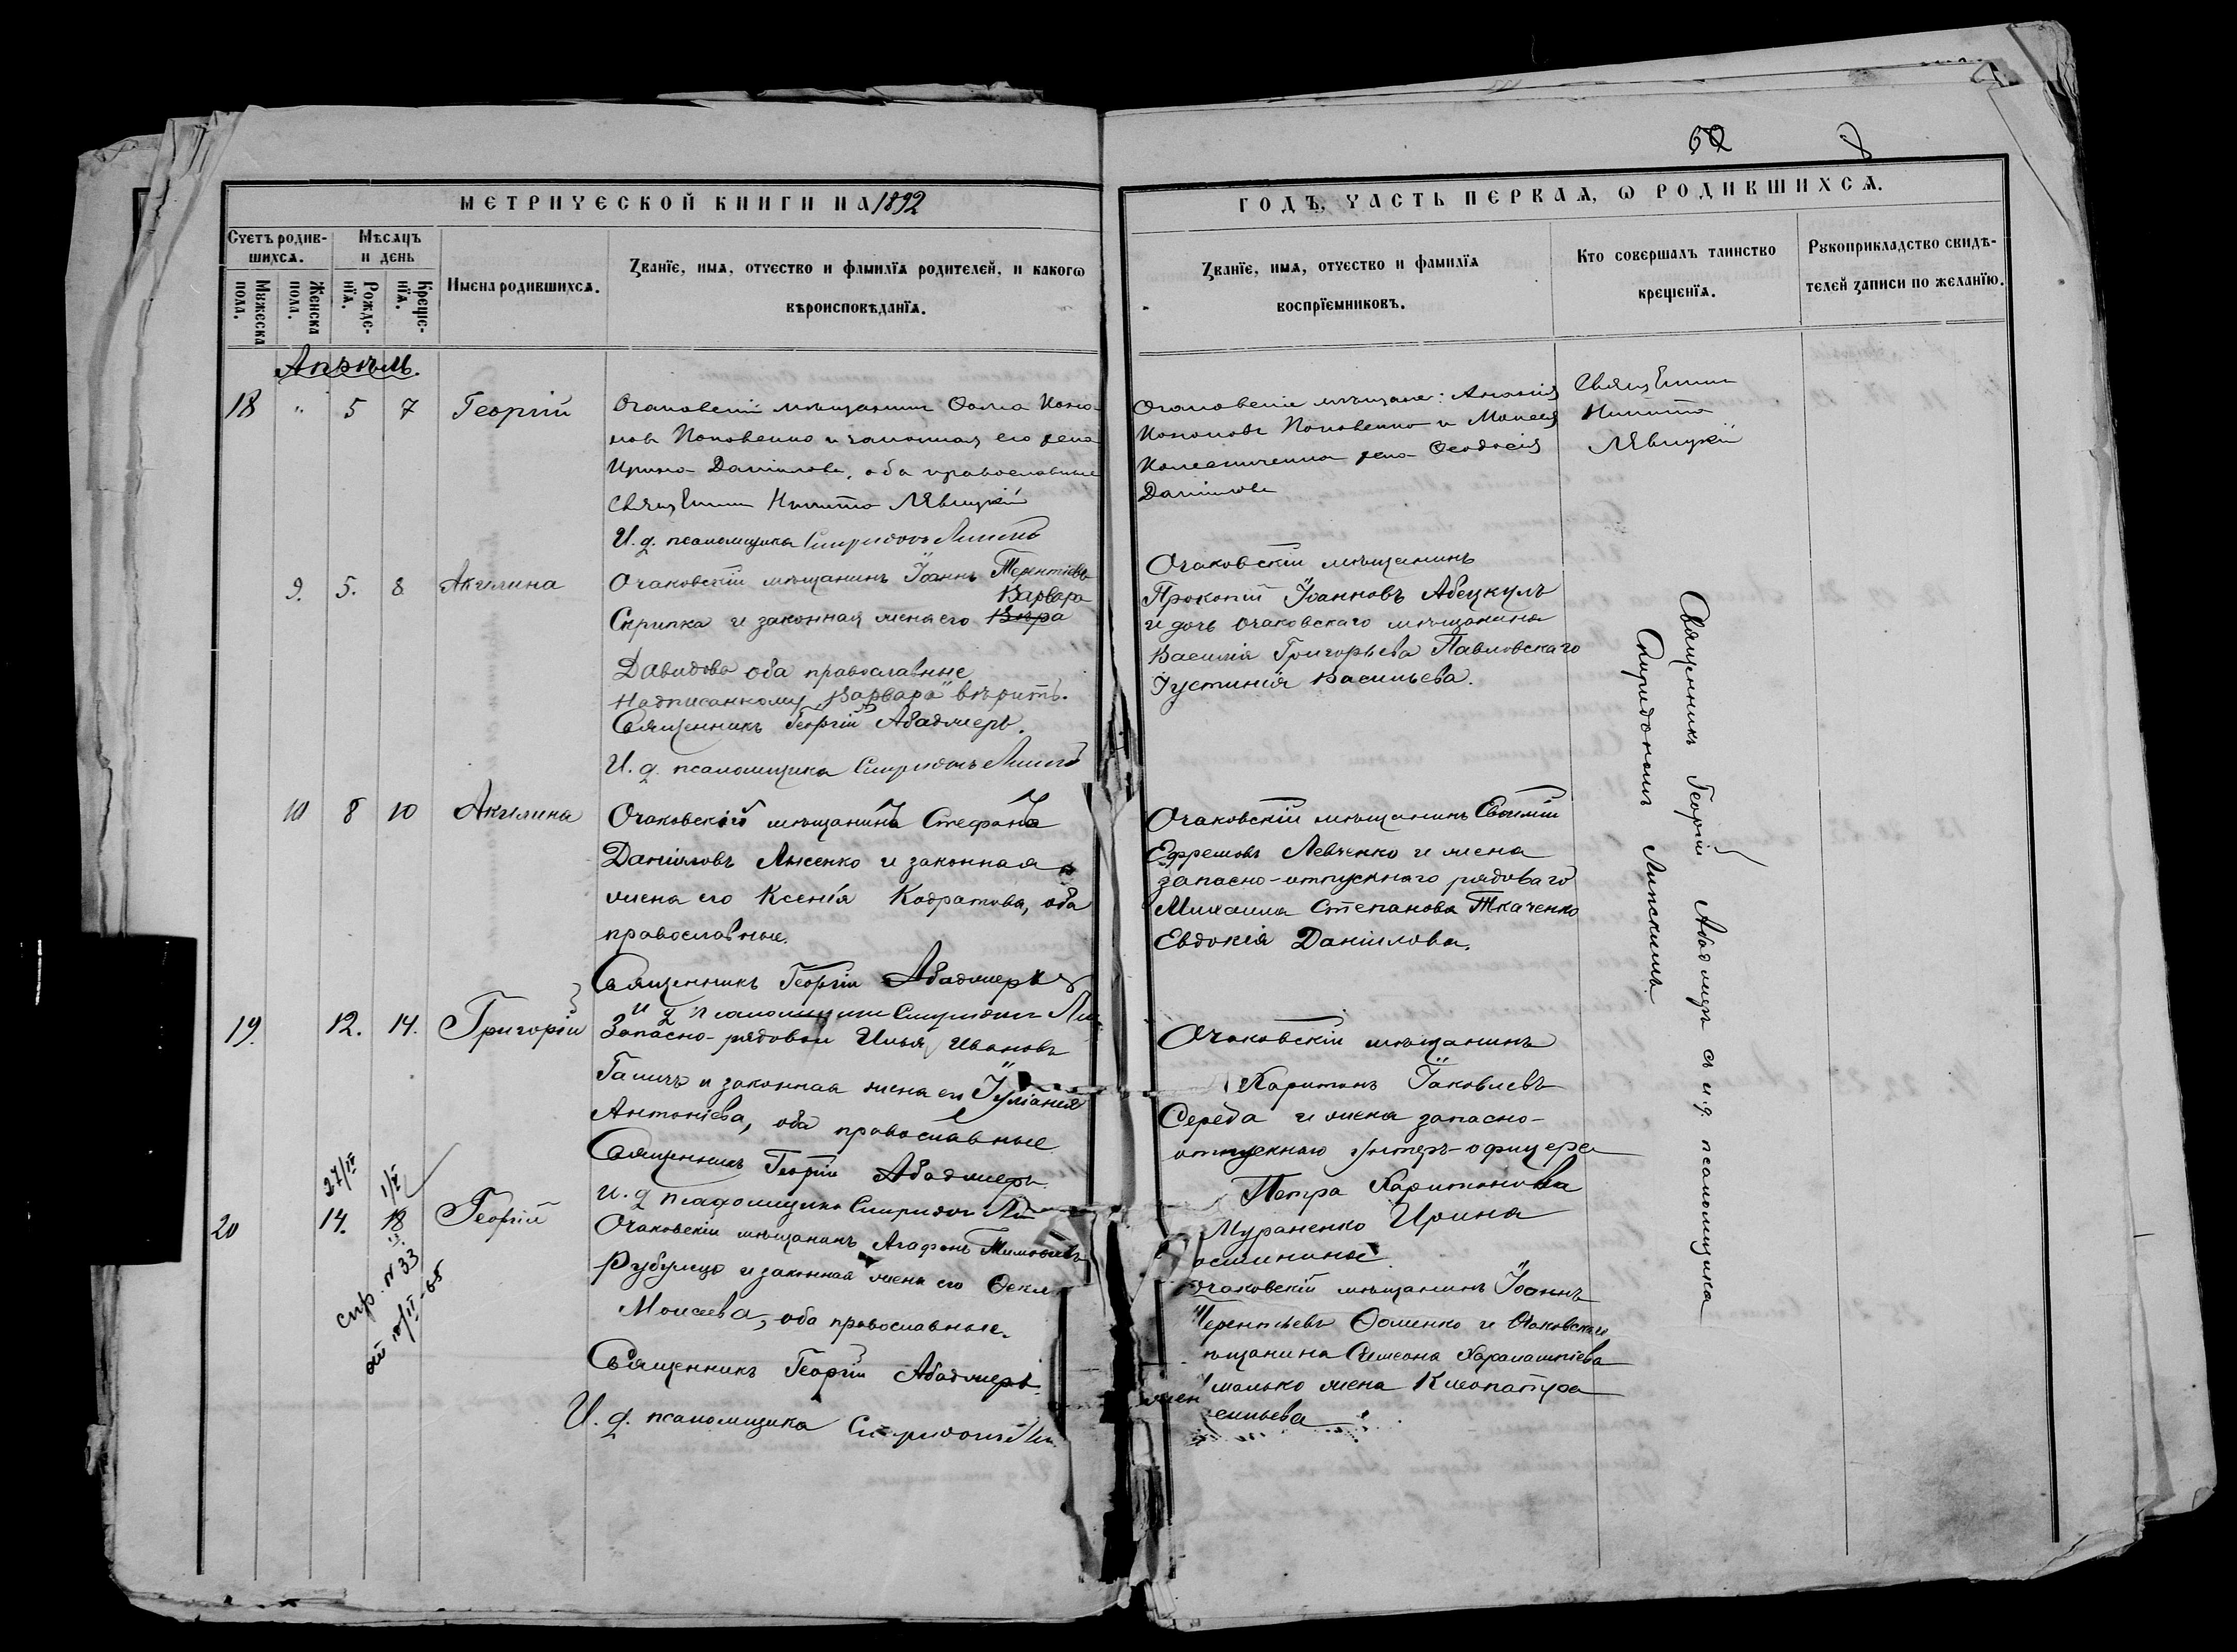 62
МЕТРИЧЕСКОЙ КНИГИ НА 1892
ГОДЪ, ЧАСТЬ ПЕРВАЯ, Ѡ РОДИВШИХСЯ.
Счетъ родив-
шихся.
Мѣсяцъ
и день
Мужеска
пола.
Женска
пола.
Рожде-
нїя.
Креще-
нїя.
Имена родившихся.
Званїе, имя, отчество и фамилїя родителей, и какогѡ
вѣроисповѣданїя.
Званїе, имя, отчество и фамилїя
воспрїемниковъ.
Кто совершалъ таинство
крещенїя.
Рукоприкладство свидѣ-
телей записи по желанїю.
Апрѣль.
18 " 5 7 Георгій
Очаковскій мѣщанинъ Ѳома Коно-
новъ Поповенко и законная его жена
Ирина Даніилова, оба православные
Священникъ Никита Лѣвицкій
И. д. псаломщика Спиридонъ
Очаковскіе мѣщане: Ананія
Кононовъ Поповенко и Моисея
жена Ѳеодосія
Даніилова
Священникъ
Никита
Лѣвицкій
9. 5. 8 Акилина
Очаковскій мѣщанинъ Іоаннъ Терентіевъ
Варвара
Скрипка и законная жена его Вѣра
Давидова оба православные
Надписанному „Варвара" вѣрить.
Священникъ Георгій Абаджеръ.
И. д. псаломщика Спиридонъ
Очаковскій мѣщанинъ
Прокопій Іоанновъ
и дочь очаковскаго мѣщанина
Василія Григорьева Павловскаго
Іустинія Васильева.
10 8 10 Акилина
Очаковскій мѣщанинъ Стефанъ
Даніиловъ Лысенко и законная
жена его Ксенія Кодратова, оба
православные.
Священникъ Георгій Абаджеръ
И д псаломщика Спиридонъ
Очаковскій мѣщанинъ Евѳимій
Ефремовъ Левченко и жена
запасно-отпускнаго рядоваго
Михаила Степанова Ткаченко
Евдокія Даніилова.
19. 12. 14. Григорій
Запасно-рядовой Илья Ивановъ
Галичъ и законная жена его Іуліанія
Антоніева, оба православные
Священникъ Георгій Абаджеръ
И. д псаломщика Спиридонъ
Очаковскій мѣщанинъ
Харитонъ Іаковлевъ
Середа и жена запасно-
отпускнаго унтеръ-офицера
Петра Харитонова
Мураненко Ирина
27/IV 1/V
20 14. 18 Георгій
спр. N 33
от 10/II-65
Очаковскій мѣщанинъ Агафонъ Тимоѳеевъ
и законная жена его Ѳекла
Моисеева, оба православные.
Священникъ Георгій Абаджеръ.
И. д. псаломщика Спиридонъ
Очаковскій мѣщанинъ Іоаннъ
Терентьевъ Ѳоменко и Очаковскаго
мѣщанина Симеона Харалампіева
жена Клеопатра
Священникъ Георгій Абаджеръ съ и. д. псаломщика
Спиридономъ Липскимъ.